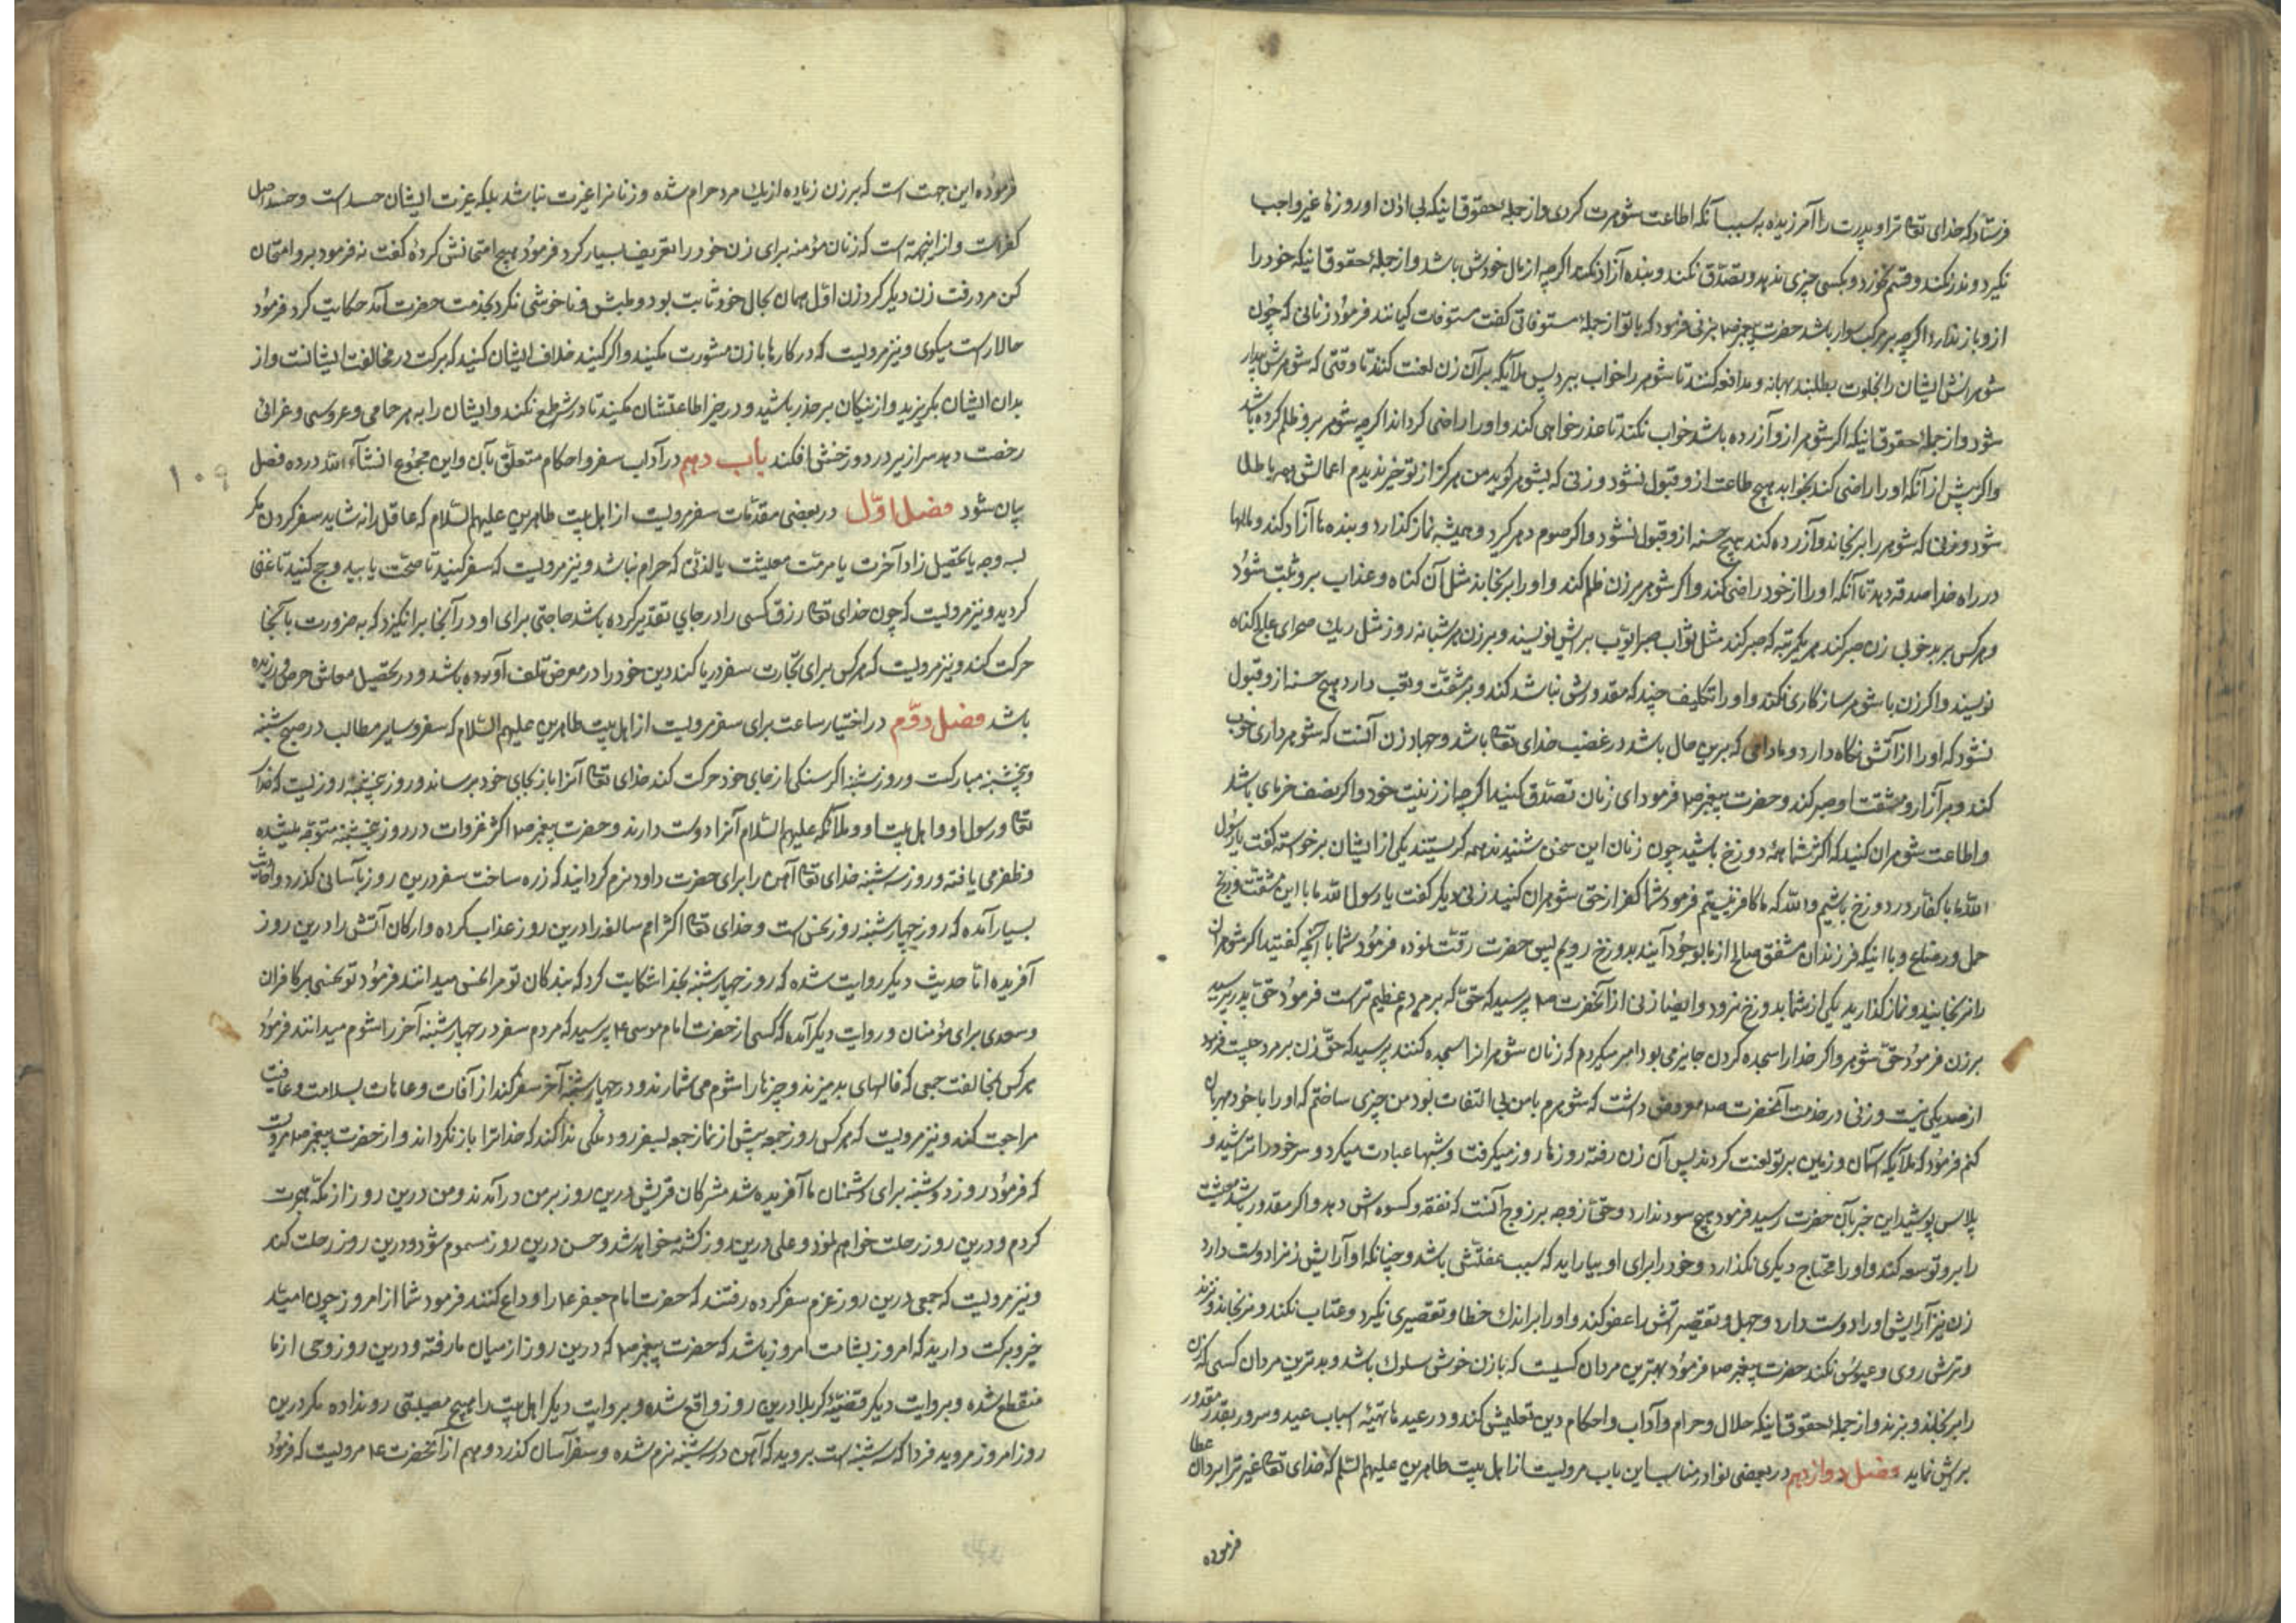 فرستاد که خدای تعالی ترا و پدرت را آمرزیده به سبب آنکه اطاعت شوهرت کردی و از جمله حقوق اینکه بی اذن او روزهٔ غیر واجب
نگیرد و نذر نکند و قسم نخورد و بکسی چیزی ندهد و تصدّق نکند و بنده آزاد نکند اگرچه از مال خودش باشد و از جملهٔ حقوق اینکه خود را
ازو باز ندارد اگرچه بر مرکب سوار باشد حضرت پیغمبر ص بزنی فرمود که با تو از جملهٔ مستوفاتی گفت مستوفات کیانند فرمود زنانی که چون
شوهرانش ایشان را بخلوت بطلبند بهانه و مدافعه کنند تا شوهر را خواب ببرد پس ملائکه بر آن زن لعنت کنند تا وقتی که شوهرش بیدار
شود و از جملهٔ حقوق اینکه اگر شوهر ازو آزرده باشد خواب نکند تا عذرخواهی کند و او را راضی گرداند اگرچه شوهر برو ظلم کرده باشد
و اگر پیش از آنکه او را راضی کند بخوابد هیچ طاعت ازو قبول نشود و زنی که بشوهر گوید من هرگز از تو خیر ندیدم اعمالش همه باطل
شود و زنی که شوهر را برنجاند و آزرده کند هیچ حسنه ازو قبول نشود و اگر صوم دهر گیرد و همیشه نماز گذارد و بنده ها آزاد کند و مالها
در راه خدا صدقه دهد تا آنکه او را از خود راضی کند و اگر شوهر بر زن ظلم کند و او را برنجاند مثل آن گناه و عذاب برو ثبت شود
و هر کس بر بدخویی زن صبر کند هر یکمرتبه که صبر کند مثل ثواب صبر ایّوب برش نویسند و بر زن هر شبانه روز مثل ریک صحرای عالج گناه
نویسند و اگر زن با شوهر سازگاری نکند و او را تکلیف چیزی که مقدورش نباشد کند و بر مشقّت و تعب دارد هیچ حسنه ازو قبول
نشود که او را از آتش نگاه دارد و مادامی که برین حال باشد در غضب خدای تعالی باشد و جهاد زن آنست که شوهرداری خوب
کند و بر آزار و مشقت او صبر کند و حضرت پیغمبر ص فرمود ای زنان تصدّق کنید اگرچه از زینت خود و اگر نصف خرمای باشد
و اطاعت شوهران کنید که اکثر شما همهٔ دوزخ باشید چون زنان این سخن شنیدند همه گریستند یکی از ایشان برخواسته گفت یا رسول
الله ما با کفّار در دوزخ باشیم والله که ما کافر نیستیم فرمود شما کفر از حق شوهران کنید زنی دیگر گفت یا رسول الله ما با این مشقّت و رنج
حمل و رضاع و با اینکه فرزندان مشفق صالح از ما بوجود آیند بدوزخ رویم پس حضرت رقّت نموده فرمود شما با آنچه گفتید اگر شوهران
را نرنجانید و نماز گذارید یکی از شما بدوزخ نرود و ایضا زنی از آنحضرت ص پرسید که حقّ که بر مرد عظیم ترست فرمود حقّ پدر پرسید
بر زن فرمود حقّ شوهر و اگر خدا را سجده کردن جایز می بود امر میکردم که زنان شوهرانرا سجده کنند پرسید که حقّ زن بر مرد چیست فرمود
از صد یکی نیست و زنی در خدمت آنحضرت ص معروض داشت که شوهرم با من بی التفات بود من چیزی ساختم که او را با خود مهربان
کنم فرمود که ملائکه آسمان و زمین بر تو لعنت کردند پس آن زن رفته روزها روزه میگرفت و شبها عبادت میکرد و سر خود را تراشید و
پلاس پوشید این خبر بآن حضرت رسید فرمود هیچ سود ندارد و حقّ زوجه بر زوج آنست که نفقه و کسوه اش دهد و اگر مقدور باشد معیشت
را برو توسعه کند و او را محتاج دیگری نگذارد و خود را برای او بیاراید که سبب عفّتش باشد و چنانکه او آرایش زنرا دوست دارد
زن نیز آرایش او را دوست دارد و جهل و تقصیراتش را عفو کند و او را بر اندك خطا و تقصیری نگیرد و عتاب نکند و نرنجاند و نزند
و ترش روی و عبوس نکند حضرت پیغمبر ص فرمود بهترین مردان کسیست که با زن خوش سلوك باشد و بدترین مردان کسی که زن
را برنجاند و بزند و از جملهٔ حقوق اینکه حلال و حرام و آداب و احکام دین تعلیمش کند و در عیدها تهیّهٔ اسباب عید و سرور بقدر مقدور
برش نماید فصل دوازدهم در بعضی نوادر مناسب این باب مرویست از اهل بیت طاهرین علیهم السّلم که خدای تعالی غیرت را بمردان عطا
فرموده
فرموده این جهت است که بر زن زیاده از یك مرد حرام شده و زنانرا غیرت نباشد بلکه غیرت ایشان حسد است و حسد اصل
کفر است و از اینجهة است که زنان مؤمنه برای زن خود را تعریف بسیار کرد فرمود هیچ امتحانش کردهٔ گفت نه فرمود برو امتحان
کن مرد رفت زن دیگر کرد زن اوّل همان بحال خود ثابت بود و طیش و ناخوشی نکرد بخدمت حضرت آمد حکایت کرد فرمود
حالا راست میگوی و نیز مرویست که در کارها با زن مشورت مکنید و اگر کنید خلاف ایشان کنید که برکت در مخالفت ایشانست و از
بدان ایشان بگریزید و از نیکان بر حذر باشید و در خیر اطاعتشان مکنید تا در شر طمع نکنند و ایشان را به هر حمامی و عروسی و عزائی
رخصت دهد سرازیر در دوزخش افکند باب دهم در آداب سفر و احکام متعلّق بآن و این مجموع انشاء الله در ده فصل
بیان شود فصل اوّل در بعضی مقدّمات سفر مرویست از اهل بیت طاهرین علیهم السّلام که عاقل را نه شاید سفر کردن مگر
بسه وجه یا تحصیل زاد آخرت یا مرمّت معیشت یا لذّتی که حرام نباشد و نیز مرویست که سفر کنید تا صحّت یابید و حج کنید تا غنی
گردید و نیز مرویست که چون خدای تعالی رزق کسی را در جای تقدیر کرده باشد حاجتی برای او در آنجا برانگیزد که به ضرورت بآنجا
حرکت کند و نیز مرویست که هر کس برای تجارت سفر دریا کند دین خود را در معرض تلف آورده باشد و در تحصیل معاش حرص ورزیده
باشد فصل دوّم در اختیار ساعت برای سفر مرویست از اهل بیت طاهرین علیهم السّلام که سفر و سایر مطالب در صبح شنبه
و پنجشنبه مبارکست و روز شنبه اگر سنکی از جای خود حرکت کند خدای تعالی آنرا باز بجای خود برساند و روز پنجشنبه روزیست که خدا
تعالی و رسول او و اهل بیت او و ملائکه علیهم السّلام آنرا دوست دارند و حضرت پیغمبر ص اکثر غزوات در روز پنجشنبه متوجّه میشده
و ظفر می یافته و روز سه شنبه خدای تعالی آهن را برای حضرت داود نرم گردانید که زره ساخت سفر درین روز بآسانی گذرد و احادیث
بسیار آمده که روز چهارشنبه روز نحس است و خدای تعالی اکثر امم سالفه را درین روز عذاب کرده و ارکان آتش را درین روز
آفریده امّا حدیث دیگر روایت شده که روز چهارشنبه بخدا شکایت کرد که بندکان تو مرا نحس میدانند فرمود تو نحسی بر کافران
و سعدی برای مؤمنان و روایت دیگر آمده که کسی از حضرت امام موسی ع پرسید که مردم سفر در چهارشنبه آخر را شوم میدانند فرمود
هر کس بمخالفت جمعی که فالهای بد میزنند و چیزها را شوم می شمارند و در چهارشنبه آخر سفر کند از آفات و عاهات بسلامت و عافیت
مراجعت کند و نیز مرویست که هر کس روز جمعه پیش از نماز جمعه بسفر رود ملکی ندا کند که خدا ترا باز نگرداند و از حضرت پیغمبر ص مرویست
که فرمود روز دوشنبه برای دشمنان ما آفریده شد مشرکان قریش درین روز بر من درآمدند و من درین روز از مکّه هجرت
کردم و درین روز رحلت خواهم نمود و علی درین روز کشته خواهد شد و حسن درین روز مسموم شود و درین روز رحلت کند
و نیز مرویست که جمعی درین روز عزم سفر کرده رفتند که حضرت امام جعفر ع را وداع کنند فرمود شما از امروز چون امید
خیر و برکت دارید که امروز بشامت امروز باشد که حضرت پیغمبر ص که درین روز از میان ما رفته و درین روز وحی از ما
منقطع شده و بروایت دیگر قضیّهٔ کربلا درین روز واقع شده و بروایت دیگر اهل بیت را هیچ مصیبتی رو نداده مگر درین
روز امروز مروید فردا که سه شنبه است بروید که آهن در سه شنبه نرم شده و سفر آسان گذرد و هم از آنحضرت ع مرویست که فرمود
۱۰۹